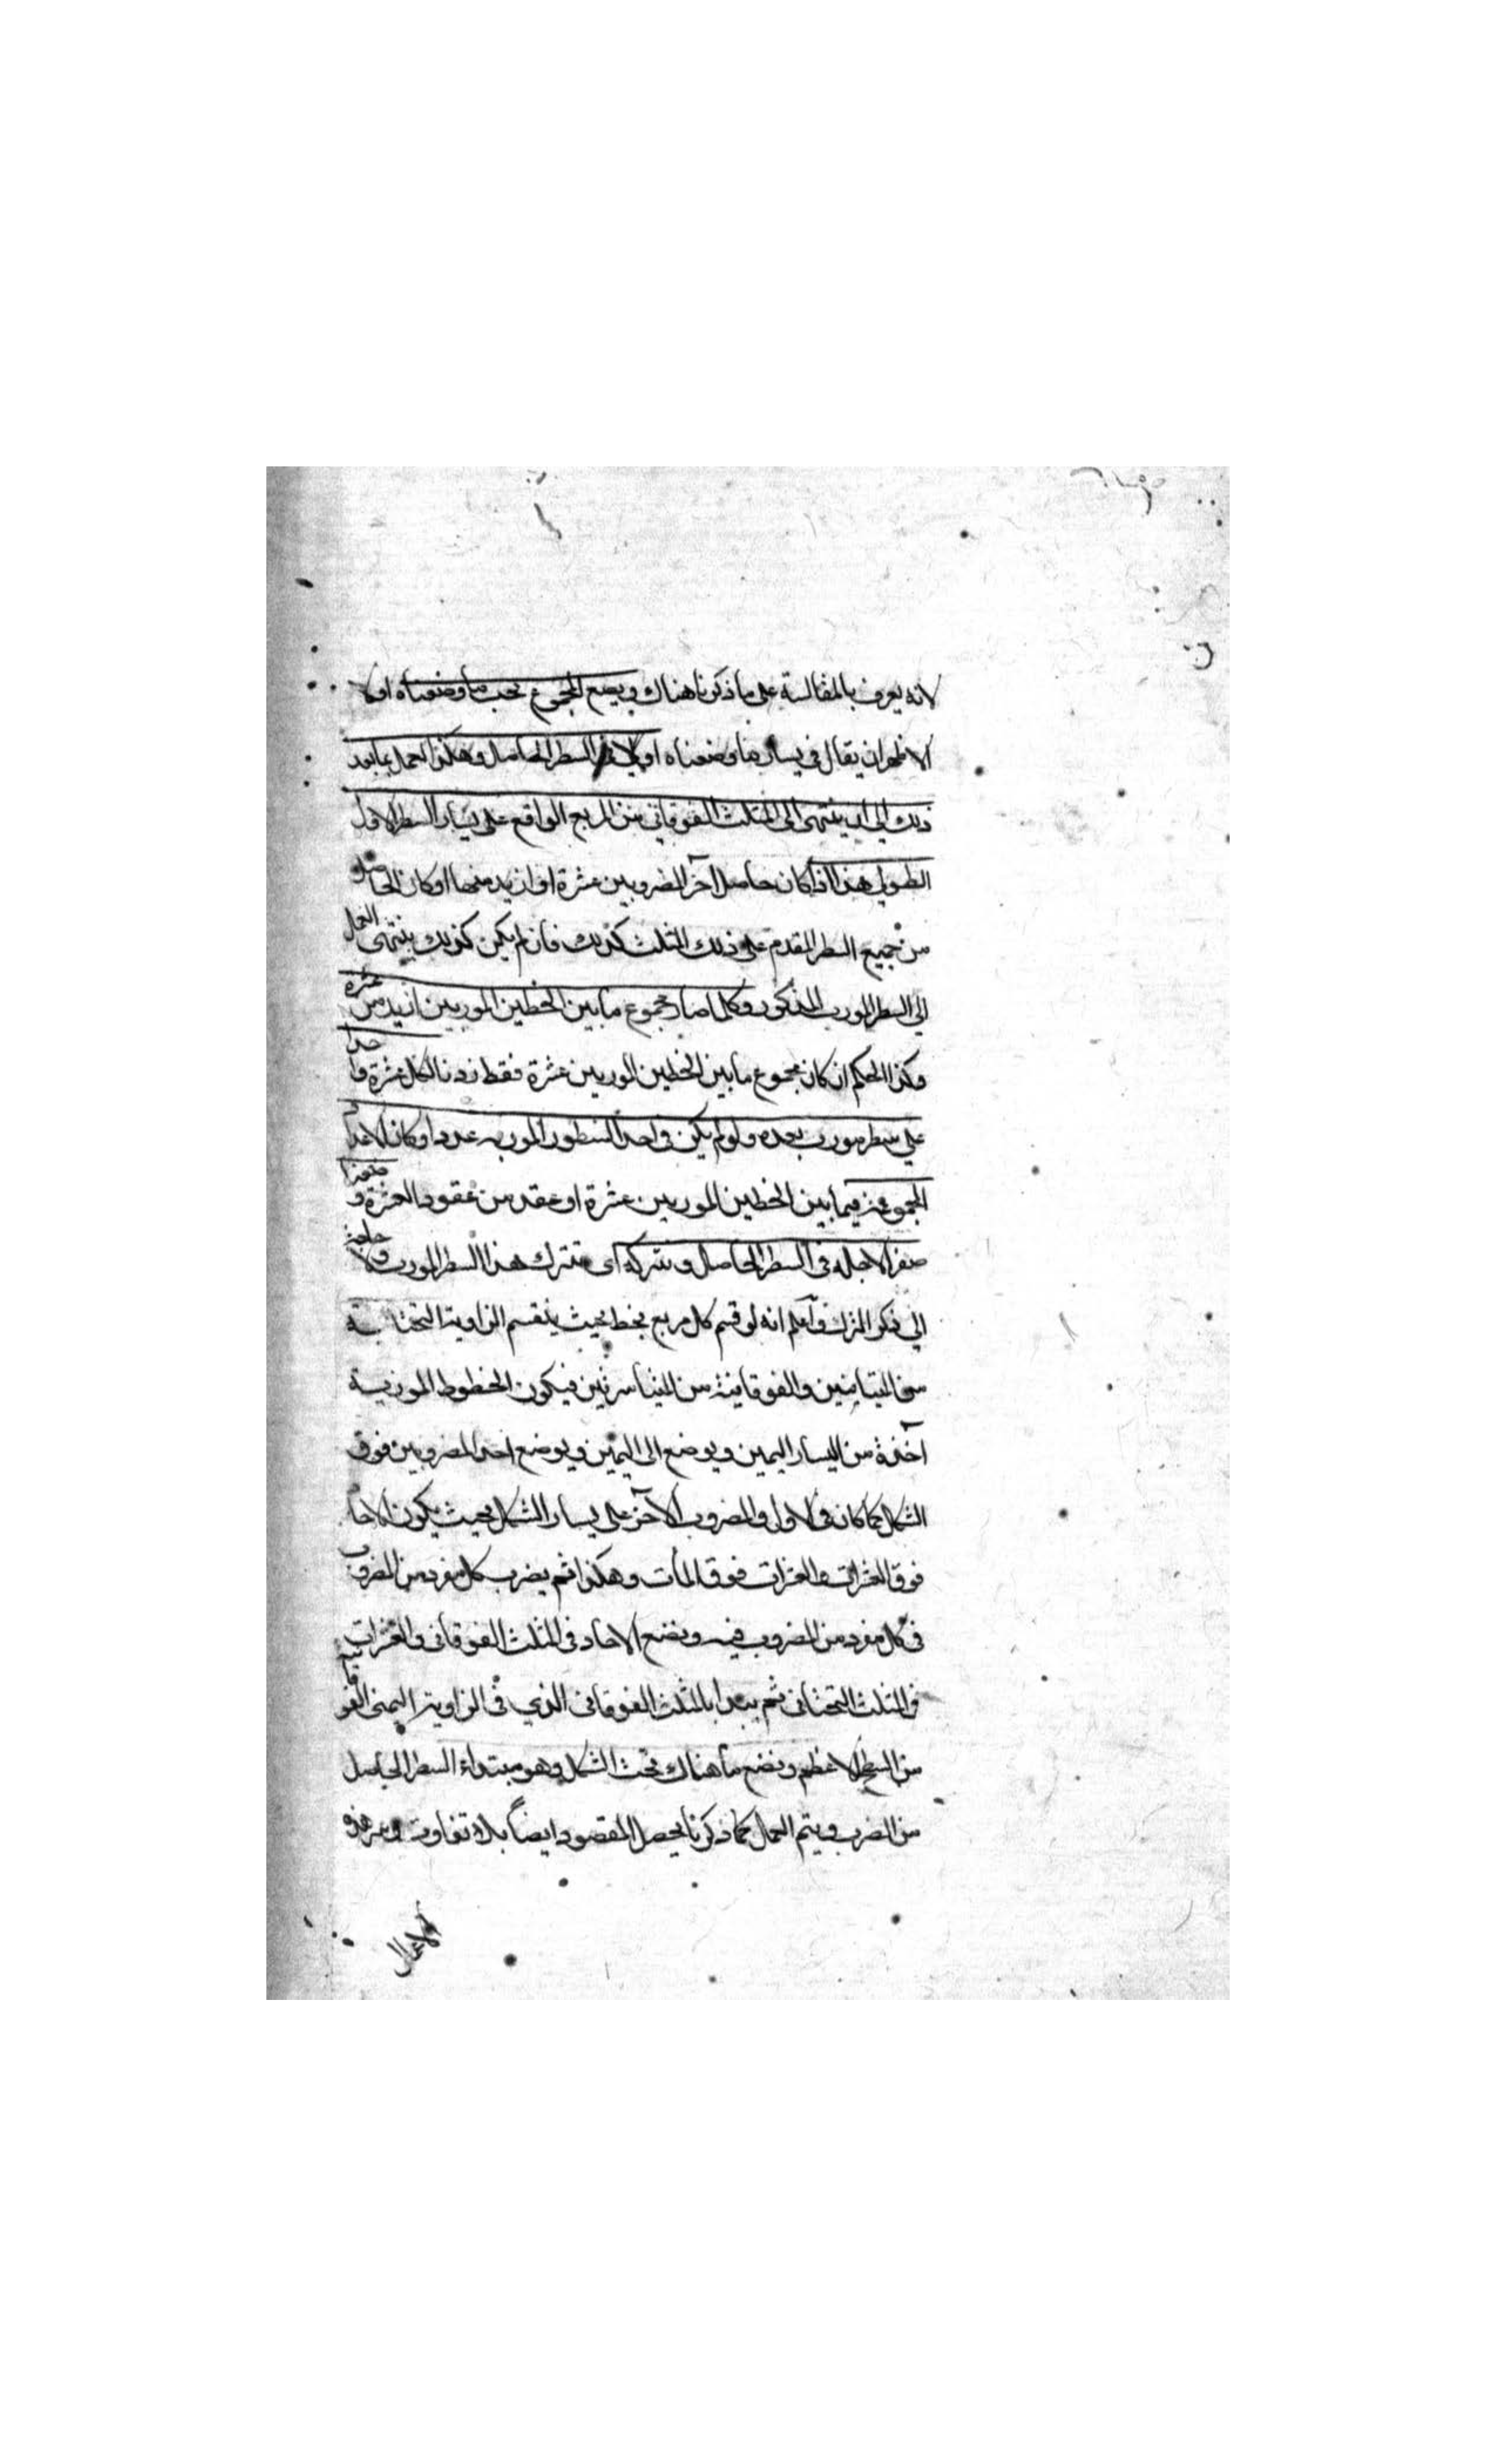 لانه يعرف بالمقايسة على ما ذكرنا هناك ويضع المجموع بجنب ما وضعناه اولا
الاظهر ان يقال في يسار ما وضعناه اولا في السطر الحاصل وهكذا نعمل بما بعد
ذلك الى ان ينتهى الى المثلث الفوقاني من المربع الواقع على يسار السطر الاول
الطولي هذا اذا كان حاصل آخر المضروبين عشرة او ازيد منها او كان الحاصل
من جميع السطر المقدم على ذلك المثلث كذلك فان لم يكن كذلك ينتهى العمل
الى السطر المورب المذكور وكلما صار مجموع ما بين الخطين الموربين ازيد من عشرة
وكذا الحكم ان كان مجموع ما بين الخطين الموربين عشرة فقط زدنا لكل عشرة واحدا
على سطر مورب بعده ولو لم يكن في احد السطور الموربه عدد او كان الاعداد
المجموعة فيما بين الخطين الموربين عشرة او عقد من عقود العشرة وضعنا
صفرا لاجله في السطر الحاصل ونتركه اى نترك هذا السطر المورب ولا حاجة
الى ذكر الترك واعلم انه لو قسم كل مربع بخط بحيث ينقسم الزاوية التحتانية
من المتيامنين والفوقانية من المتياسرتين فيكون الخطوط الموربة
آخذة من اليسار اليمين ويوضع الى اليمين ويوضع احد المضروبين فوق
الشكل كما كان في الاول والمضروب الآخر على يسار الشكل بحيث يكون الاحاد
فوق العشرات والعشرات فوق المآت وهكذا ثم يضرب كل مفرد من المضروب
في كل مفرد من المضروب فيه ونضع الاحاد في المثلث الفوقاني والعشرات
في المثلث التحتاني ثم يبدا بالمثلث الفوقاني الذي في الزاوية اليمنى الفوقانية
من السطح الاعظم ونضع ما هناك تحت الشكل وهو مبتداء السطر الحاصل
من الضرب ويتم العمل كما ذكرنا يحصل المقصود ايضاً بلا تفاوت ومن هذه
الاعمال